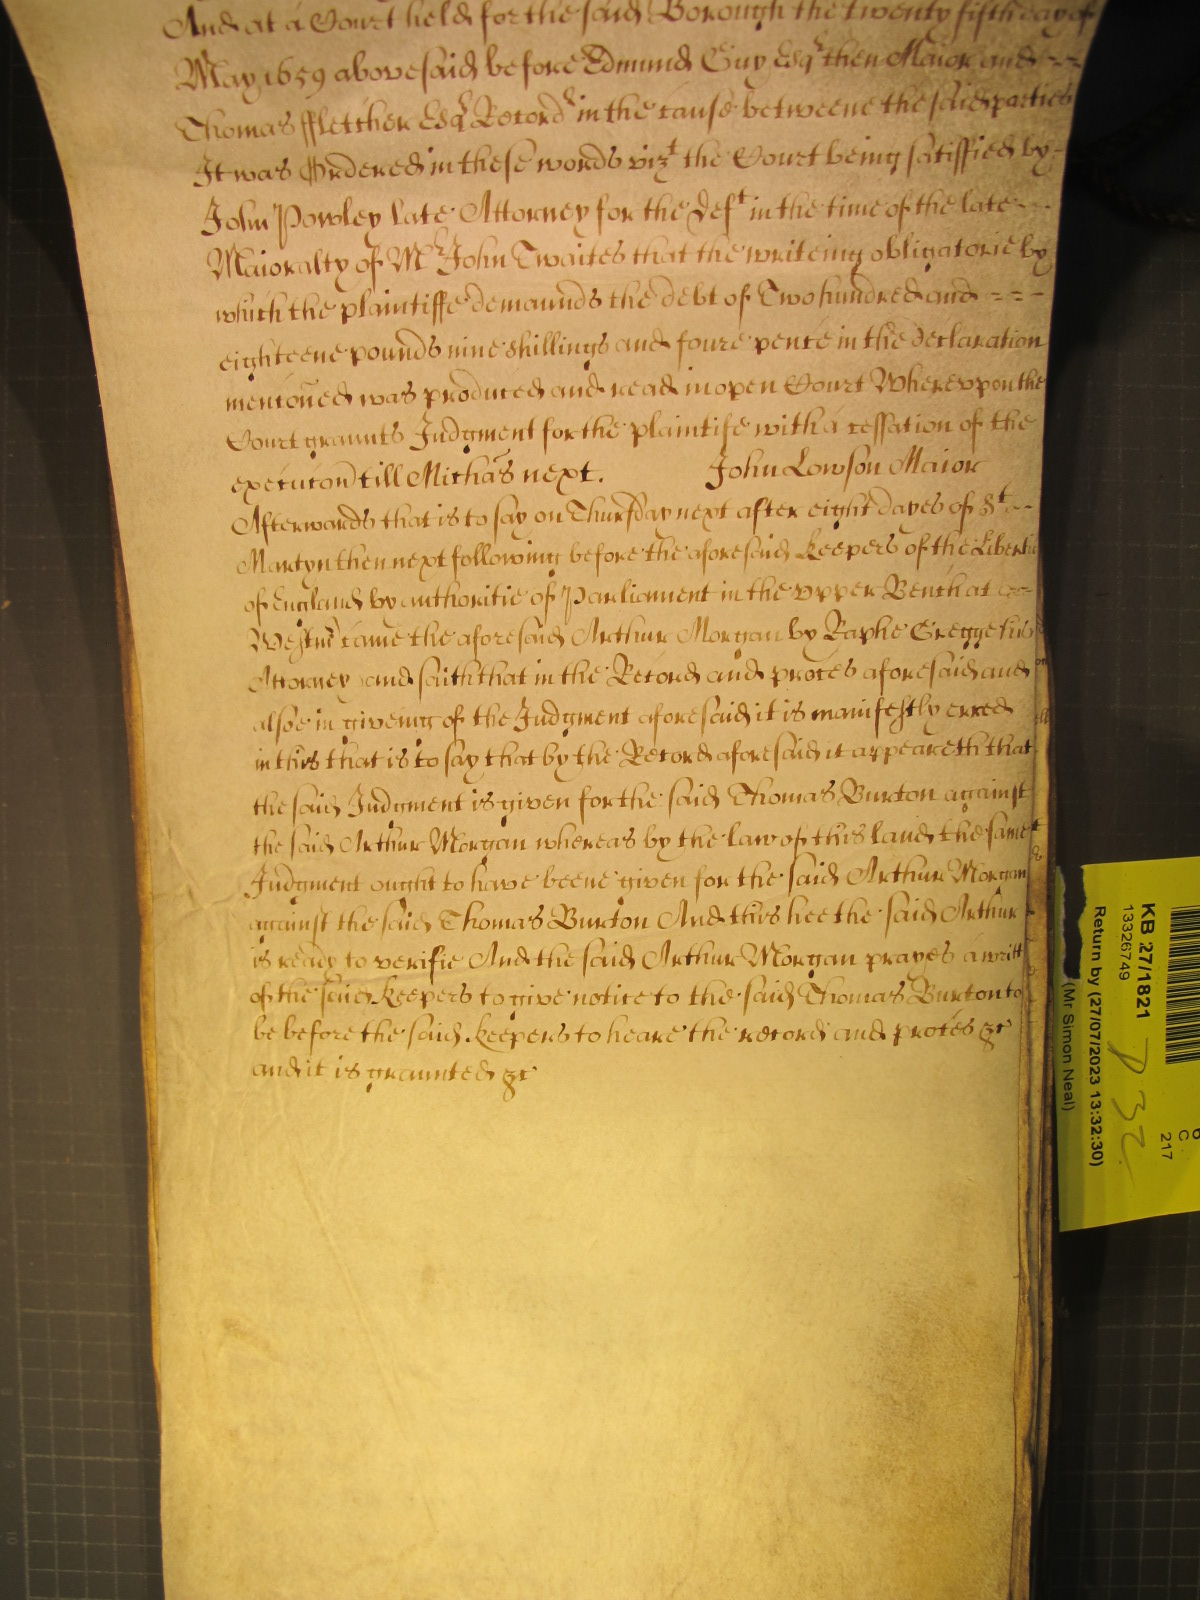 And at a Court held for the said Borough the twenty fifth day of
May 1659 abovesaid before Edmund Guy Esqr then Maior and
Thomas ffletcher Esqr Recordr in the cause betweene the said parties
It was Ordered in these words vizt the Court being satiffied by
John Powley late Attorney for the Deft in the time of the late
Maioralty of Mr John Twaites that the writeing obligatorie by
which the plaintiffe demaunds the debt of Two hundred and
eighteene pounds nine shillings and foure pence in the declaration
menconed was produced and read in open Court Wherevpon the
Court graunts Judgment for the plaintife with a cessation of the
execucon till Michas next. John Lowson Maior
Afterwards that is to say on Thursday next after eight dayes of St
Martyn then next following before the aforesaid Keepers of the Libertie
of England by authoritie of Parliament in the vpper Bench at
Westmr came the aforesaid Arthur Morgan by Raphe Gregge his
Attorney and saith that in the Record and proces aforesaid and
alsoe in giveing of the Judgment aforesaid it is manifestly erred
in this that is to say that by the Record aforesaid it appeareth that
the said Judgment is given for the said Thomas Burton against
the said Arthur Morgan whereas by the law of this land the same
Judgment ought to have beene given for the said Arthur Morgan
against the said Thomas Burton And this hee the said Arthur
is ready to verifie And the said Arthur Morgan prayes a writt
of the said Keepers to give notice to the said Thomas Burton to
be before the said Keepers to heare the record and proces &c
and it is graunted &c
KB 27/1821
13326749
Return by (27/07/2023 13:32:30)
(Mr Simon Neal)
C
217